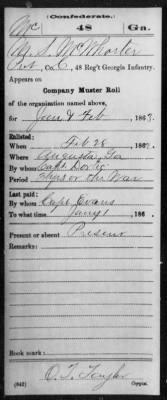 (Confederate.)
Mc 48 Ga.
A. S. McWhorter
Pvt, Co. C, 48 Reg't Georgia Infantry.
Appears on
Company Muster Roll
of the organization named above,
for Jan & Feb, 1863.
Enlisted:
When Feb 28, 186
Where Augusta, Ga
By whom Capt
Period 3 yrs or the War
Last paid:
By whom Capt Evans
To what time Jany 1, 186
Present or absent Present
Remarks:
Book mark:
(642) Copyist.